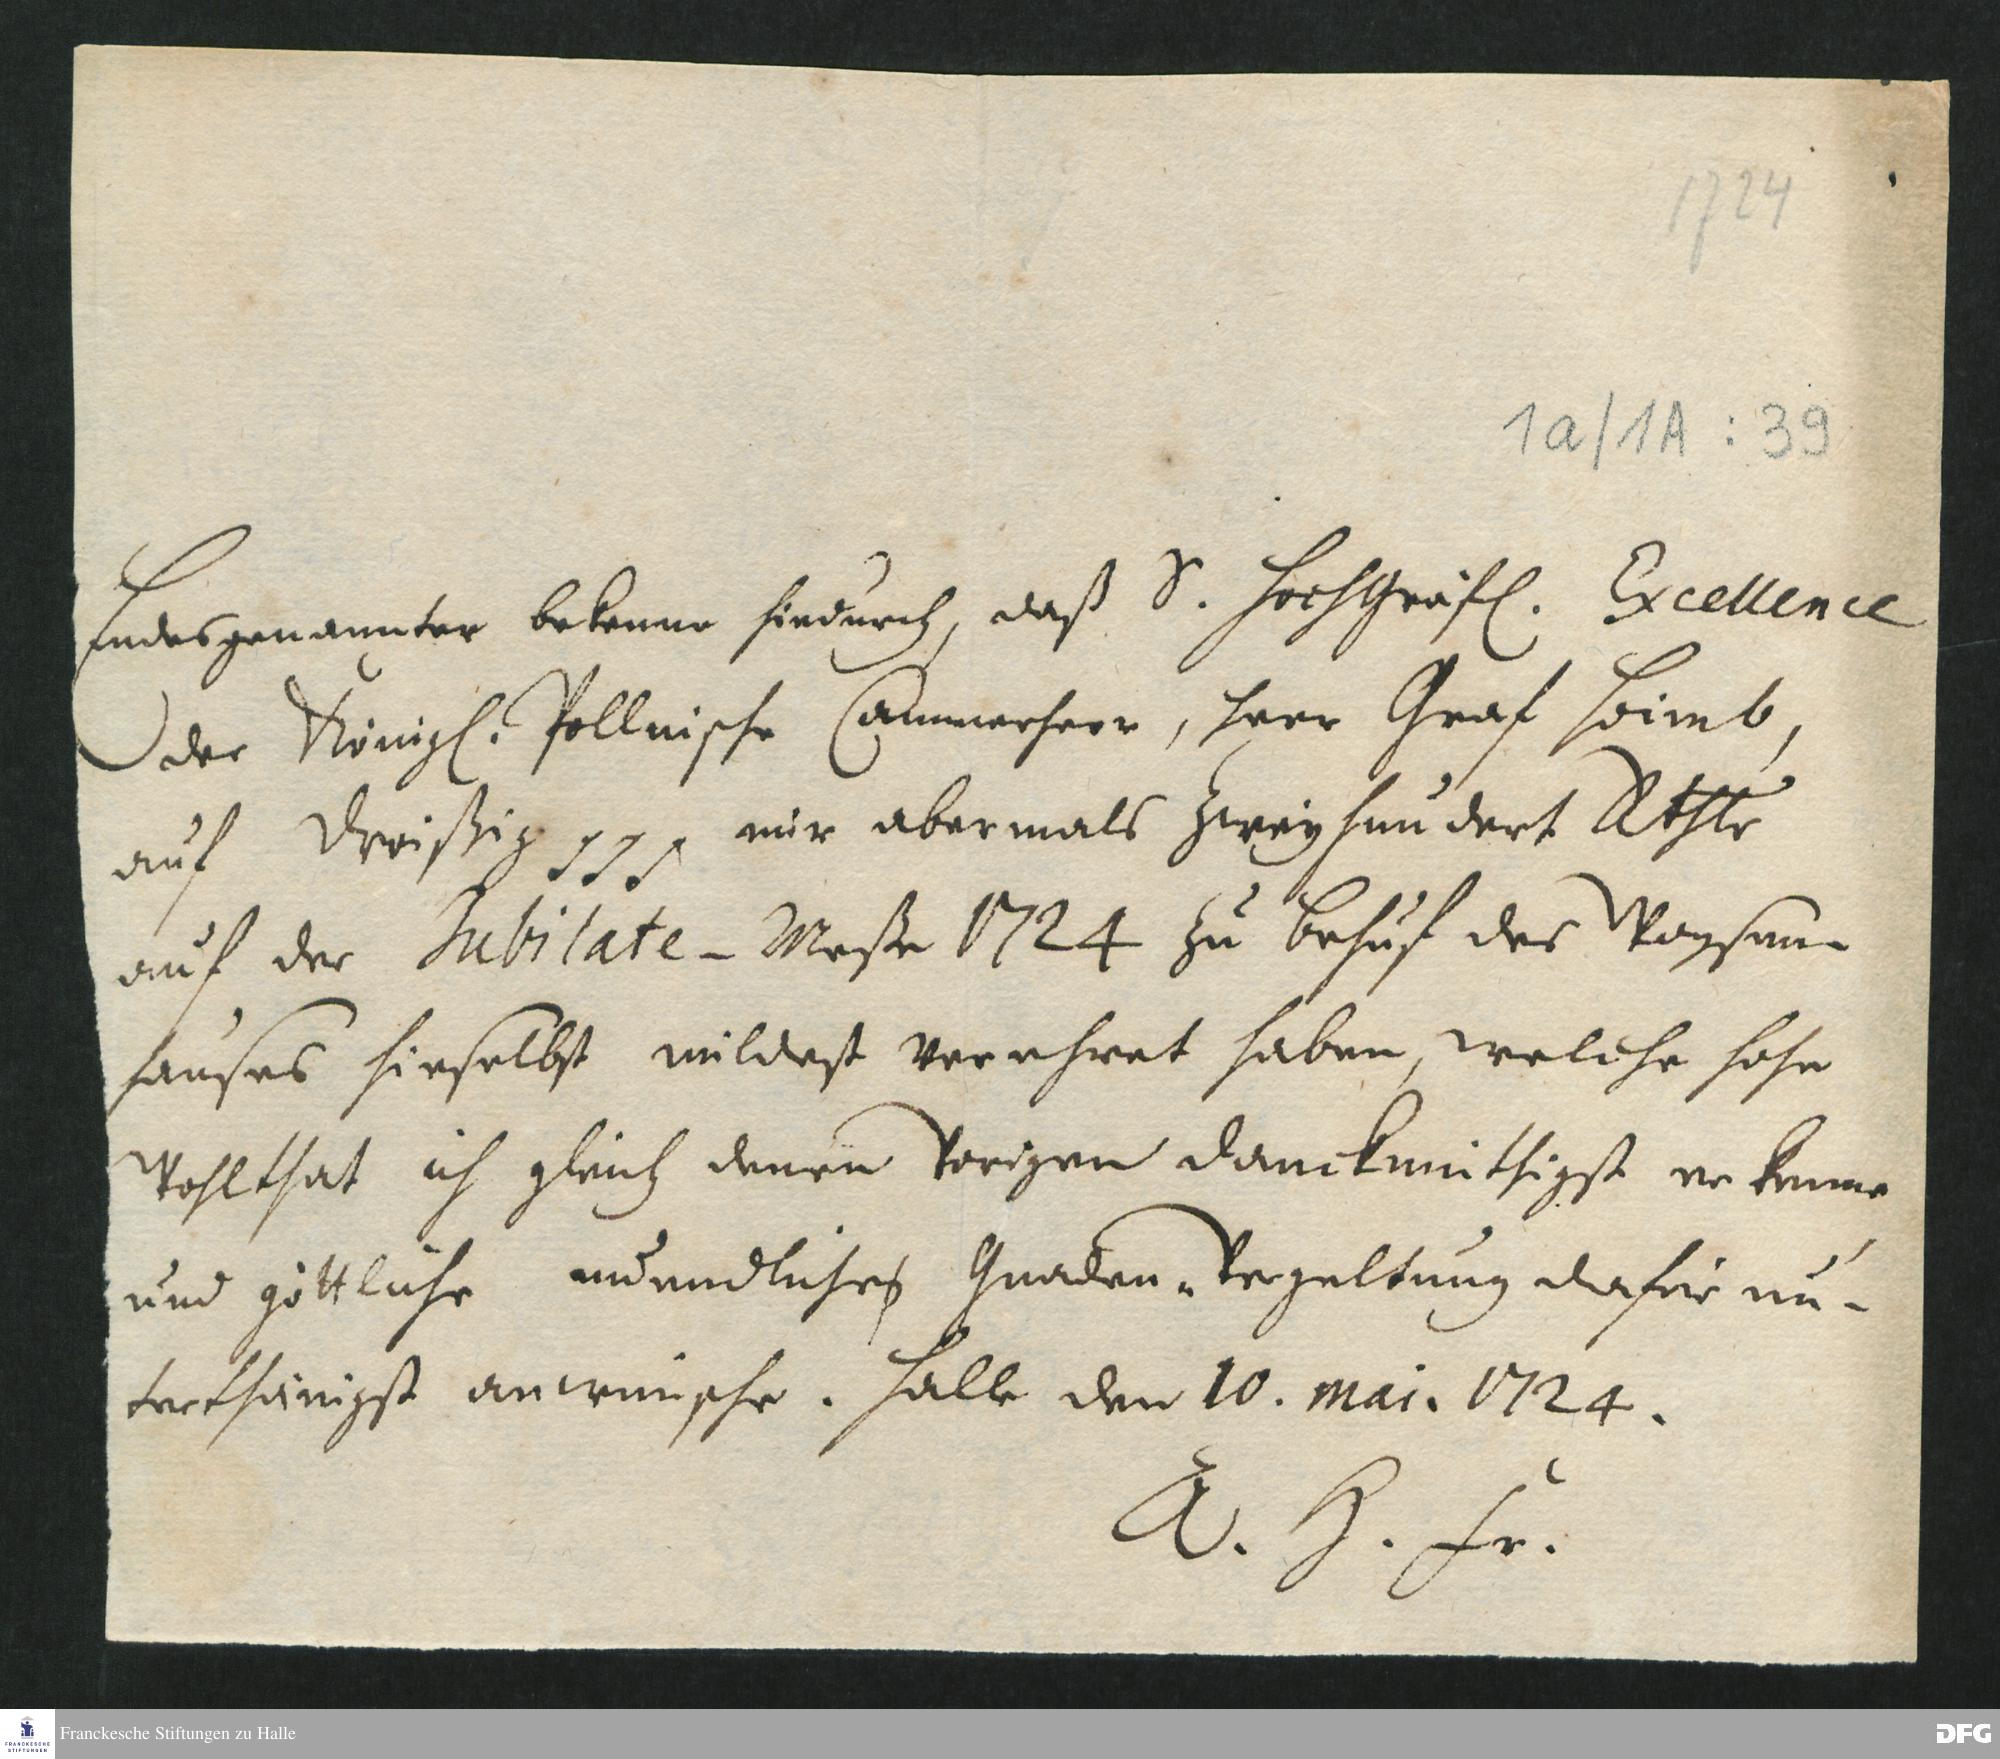 1724
1a/1A : 39
Endesgenannter bekenne hiedurch, daß S. HochGräfl. Excellence
der Königl. Pollnische Cammerherr, Herr Graf Hoimb,
auf mir abermals zweyhundert Rthlr
auf der Jubilate-Messe 1724 zu behuf des Waysen-
hauses hieselbst mildest verehret haben, welche hohe
Wohlthat ich gleich denen Vorigen danckmüthigst erkenne
und göttliche unendliche Gnaden-Vergeltung dafür un-
terthänigst anwünsche. Halle den 10. Mai. 1724.
A. H. Fr.
FRANCKESCHE
STIFTUNGEN
Franckesche Stiftungen zu Halle
DFG